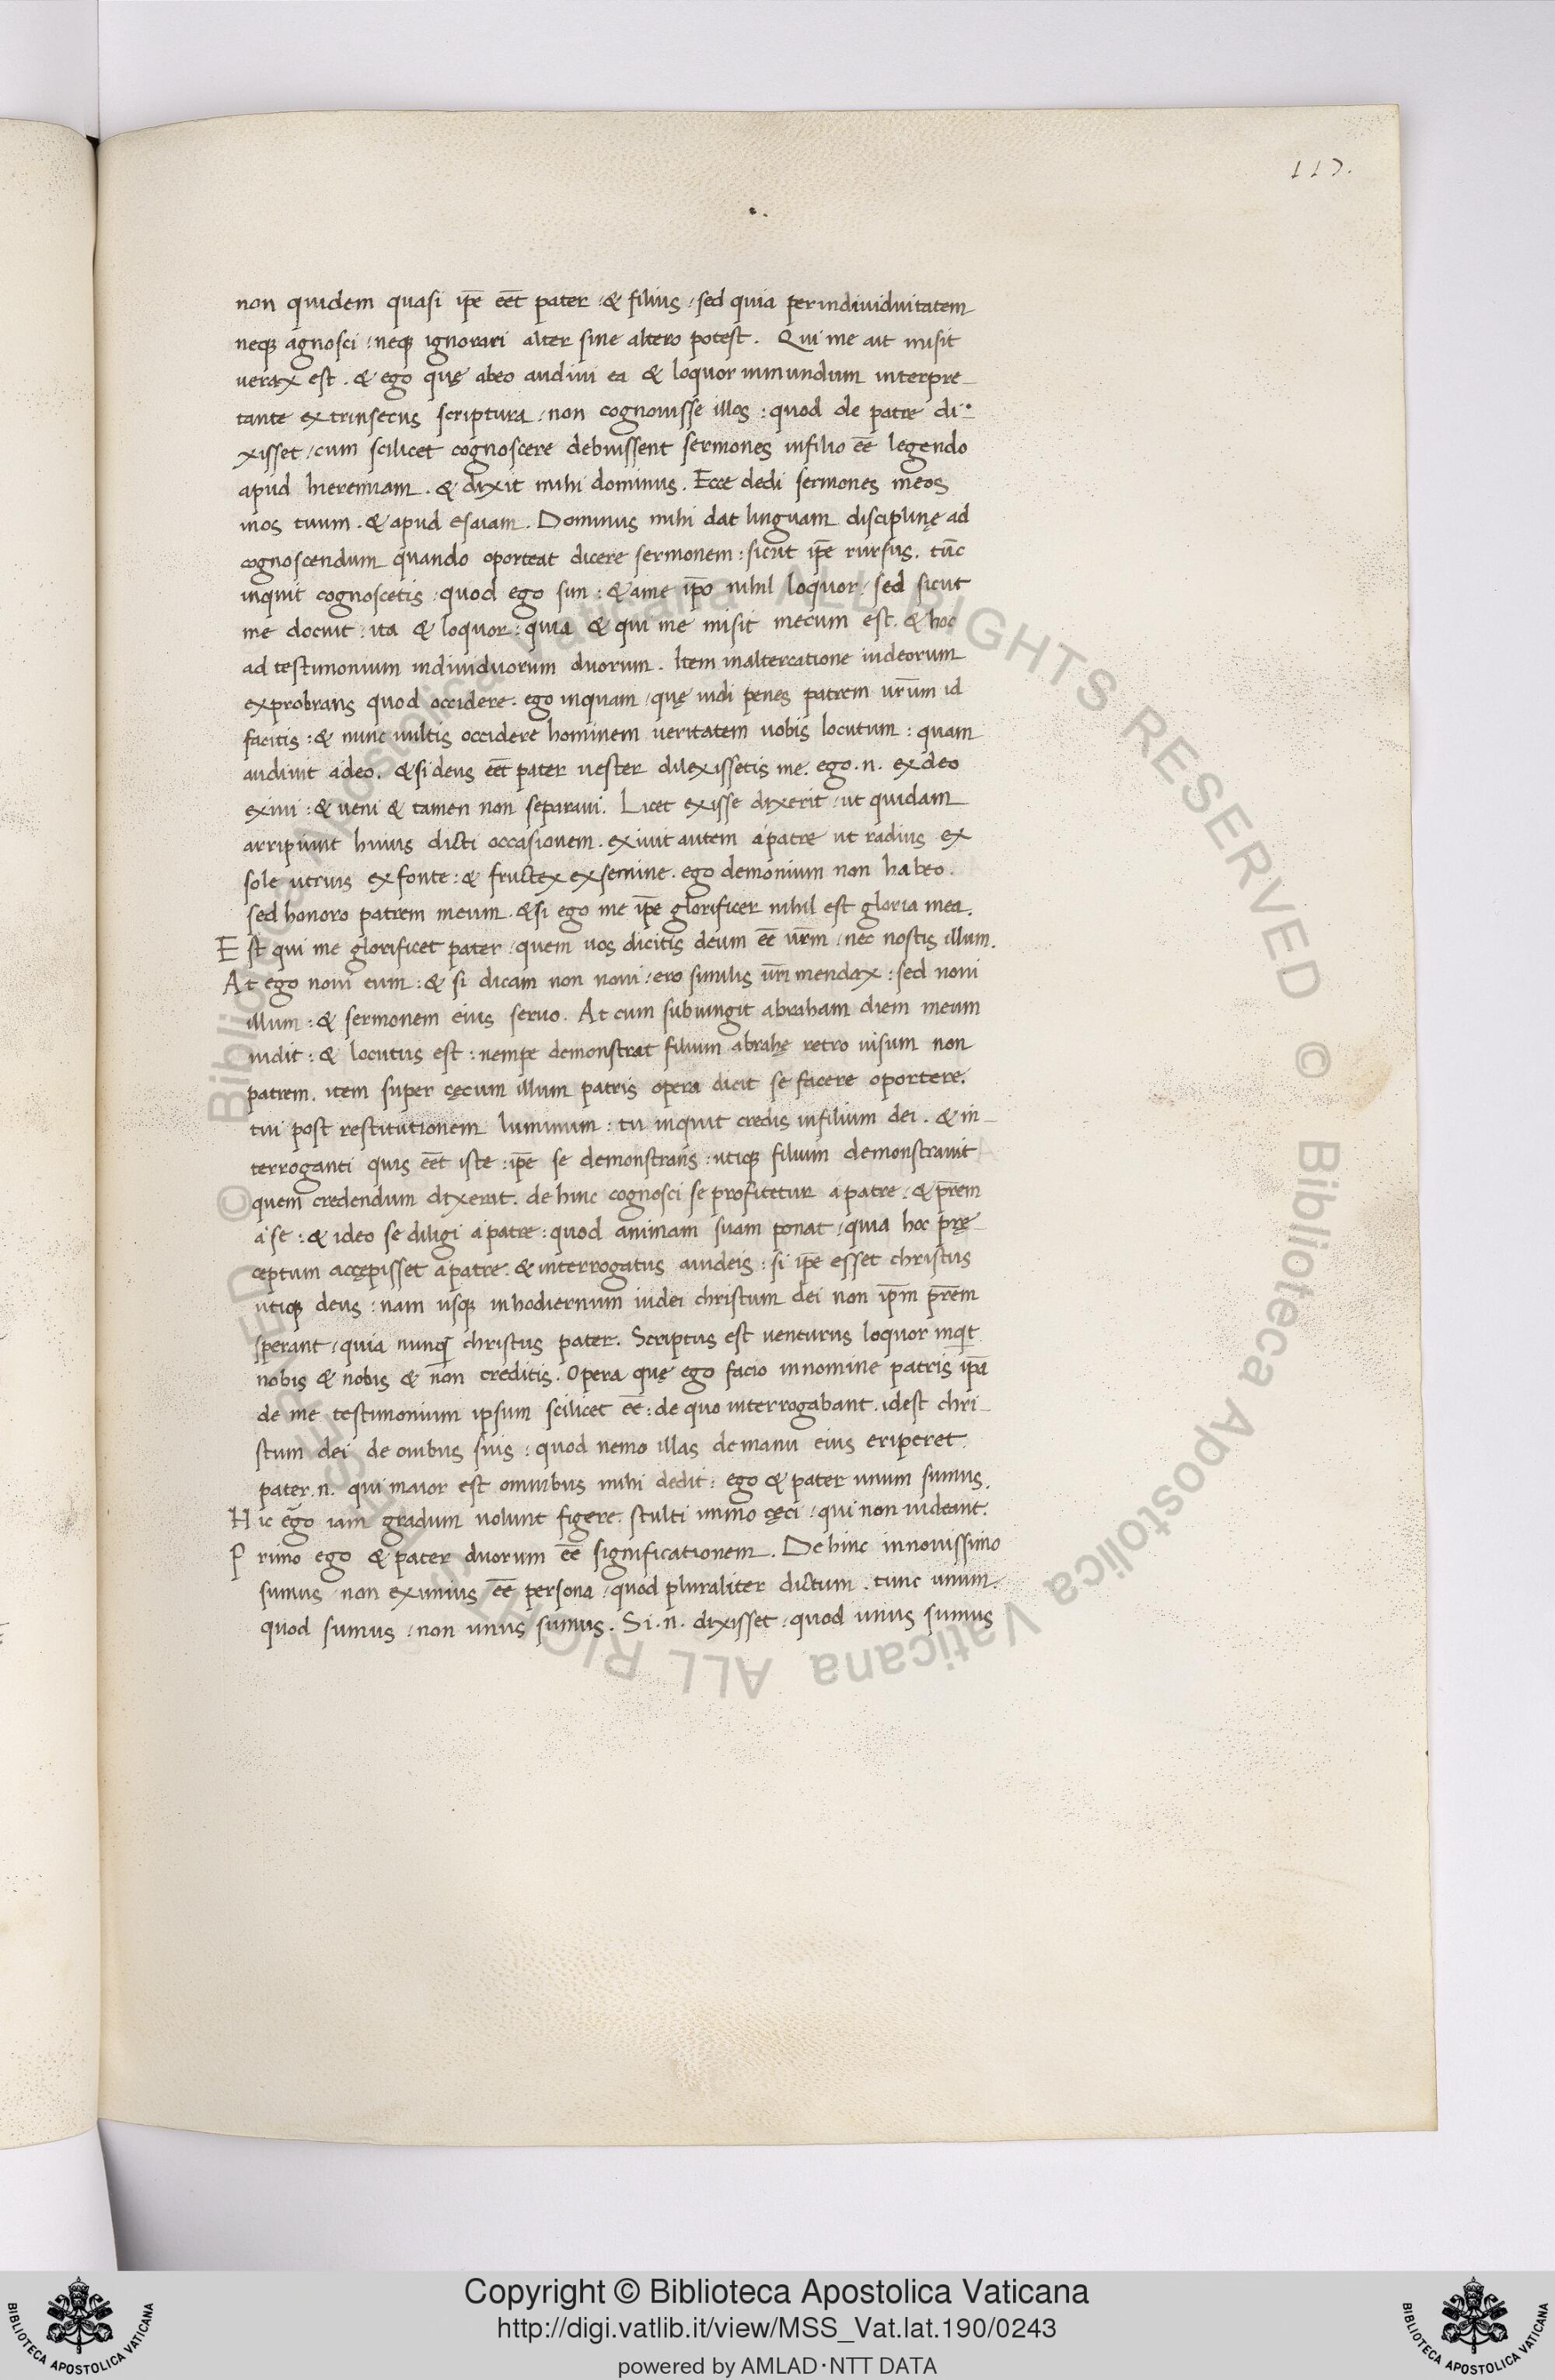 117.
non quidem quasi ip̄e eēt pater / & filius / sed quia perindividuitatem
neqȝ agnosci / neqȝ ignorari alter sine altero potest. Qui me ait misit
verax est. & ego quę abeo audivi ea & loquor inmundum interpre-
tante extrinsecus scriptura / non cognovisse illos : quod de patre di
xisset / cum scilicet cognoscere debuissent sermones infilio eē legendo
apud hieremiam. & dixit mihi dominus. Ecce dedi sermones meos
inos tuum. & apud esaiam. Dominus mihi dat linguam disciplinę ad
cognoscendum quando oporteat dicere sermonem : sicut ip̄e rursus. tūc
inquit cognoscetis / quod ego sum : & ame ip̄o nihil loquor / sed sicut
me docuit : ita & loquor : quia & qui me misit mecum est. & hoc
ad testimonium individuorum duorum. Item inaltercatione iudeorum
exprobrans quod occidere. ego inquam / quę vidi penes patrem vr̄um id
facitis : & nunc vultis occidere hominem veritatem vobis locutum : quam
audivit adeo. & si deus eēt pater vester dilexissetis me. ego .n. exdeo
exivi : & veni & tamen non separavi. Licet exisse dixerit / ut quidam
arripiunt huius dicti occasionem. exivit autem apatre ut radius ex
sole utrius exfonte : & frutex exsemine. ego demonium non habeo.
sed honoro patrem meum. & si ego me ip̄e glorificer nihil est gloria mea.
Est qui me glorificet pater / quem vos dicitis deum eē vr̄m / nec nostis illum.
At ego novi eum : & si dicam non novi / ero similis vr̄i mendax : sed novi
illum : & sermonem eius servo. At cum subiungit abraham diem meum
vidit : & locutus est : nempe demonstrat filium abrahę retro visum non
patrem. item super cęcum illum patris opera dicit se facere oportere.
cui post restitutionem luminum : tu inquit credis infilium dei. & in-
terroganti quis eēt iste : ip̄e se demonstrans : utiqȝ filium demonstravit
quem credendum dixerat. dehinc cognosci se profitetur apatre / & pr̄em
a se : & ideo se diligi apatre : quod animam suam ponat / quia hoc prę
ceptum accępisset apatre. & interrogatus aiudeis : si ip̄e esset christus
utiqȝ deus : nam usqȝ inhodiernum iudei christum dei non ip̄m pr̄em
sperant / quia nunqȝ christus pater. Scriptus est venturus loquor inqt
nobis & nobis & non creditis. Opera quę ego facio innomine patris ip̄a
de me testimonium ipsum scilicet eē : de quo interrogabant. idest chri-
stum dei de ovibus suis : quod nemo illas demanu eius eriperet
pater .n. qui maior est omnibus mihi dedit : ego & pater unum sumus.
Hic ego iam gradum volunt figere. stulti immo cęci / qui non videant.
Primo ego & pater duorum eē significationem. Dehinc innovissimo
sumus / non exunius eē persona / quod pluraliter dictum. tunc unum.
quod sumus / non unus sumus. Si .n. dixisset / quod unus sumus
© Biblioteca Apostolica Vaticana ALL RIGHTS RESERVED © Biblioteca Apostolica Vaticana ALL RIGHTS RESERVED
Copyright © Biblioteca Apostolica Vaticana
http://digi.vatlib.it/view/MSS_Vat.lat.190/0243
powered by AMLAD·NTT DATA
BIBLIOTECA APOSTOLICA VATICANA
BIBLIOTECA APOSTOLICA VATICANA